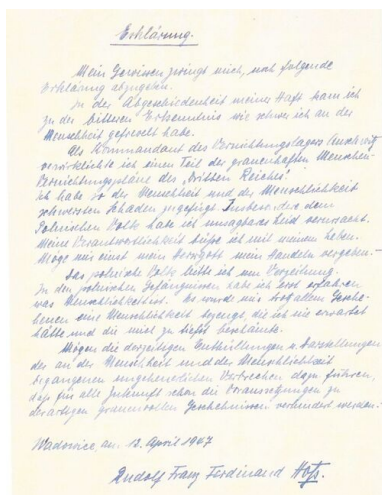 Erklärung.
Mein Gewissen zwingt mich, noch folgende
Erklärung abzugeben.
In der Abgeschiedenheit meiner Haft kam ich
zu der bitteren Erkenntnis wie schwer ich an der
Menschheit gefrevelt habe.
Als Kommandant des Vernichtungslagers Auschwitz
verwirklichte ich einen Teil der grauenhaften Menschen-
vernichtungspläne des „Dritten Reiches“.
Ich habe so der Menschheit und der Menschlichkeit
schwersten Schaden zugefügt. Insbesondere dem
Polnischen Volk habe ich unsagbares Leid verursacht.
Meine Verantwortlichkeit büße ich mit meinem Leben.
Möge mir einst mein Herrgott mein Handeln vergeben.
Das polnische Volk bitte ich um Verzeihung.
In den polnischen Gefängnissen habe ich erst erfahren
was Menschlichkeit ist. Es wurde mir trotz allem Gesche-
henen eine Menschlichkeit bezeugt, die ich nie erwartet
hätte und die mich zu tiefst beschämte.
Mögen die derzeitigen Enthüllungen u. Darstellungen
der an der Menschheit und der Menschlichkeit
begangenen ungeheuerlichen Verbrechen dazu führen,
daß für alle Zukunft schon die Voraussetzungen zu
derartigen grauenvollen Geschehnissen verhindert werden.
Wadowice, am 12. April 1947
Rudolf Franz Ferdinand Höß.